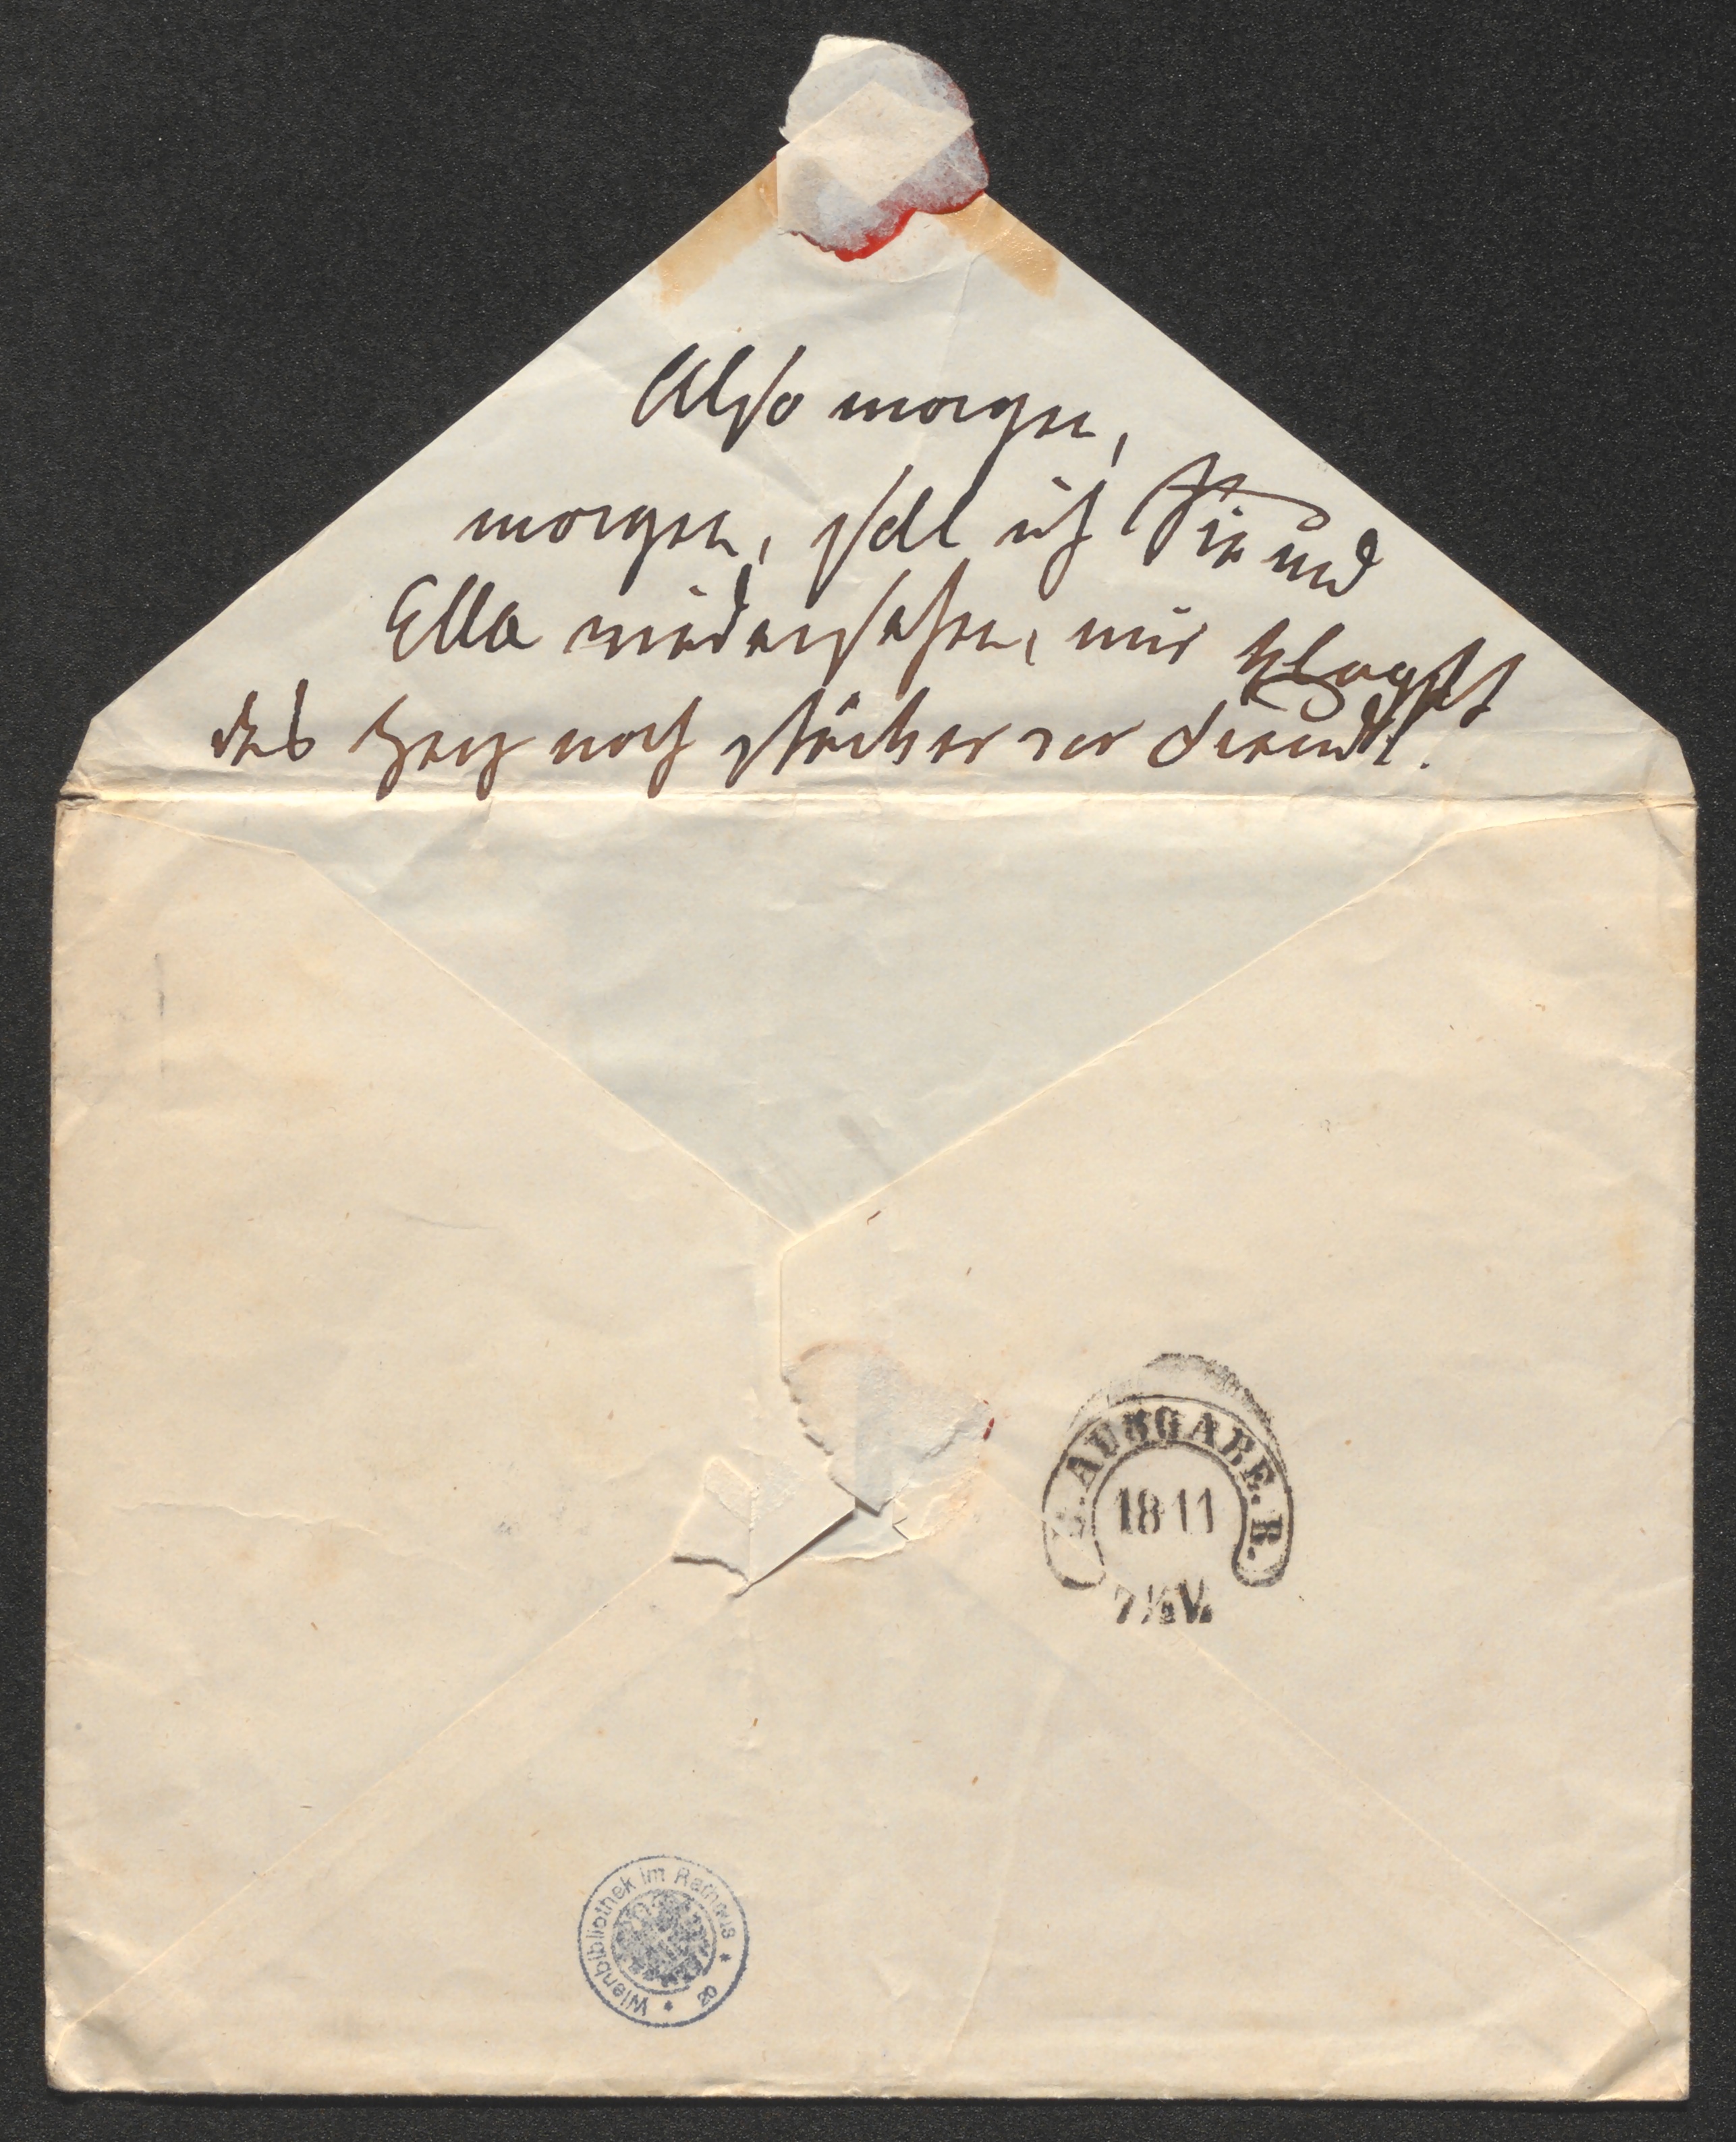 Also morgen,
morgen, soll ich Sie und
Ella wiedersehen, mir klopft
das Herz noch stärker vor Freude!
AUSGABE. R.
18 11
7 ½ V.
Wienbibliothek im Rathaus * 20 *